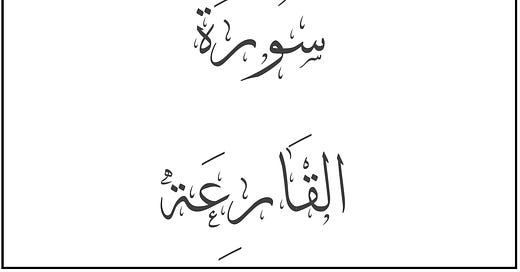 سُورَة
القَارِعَة